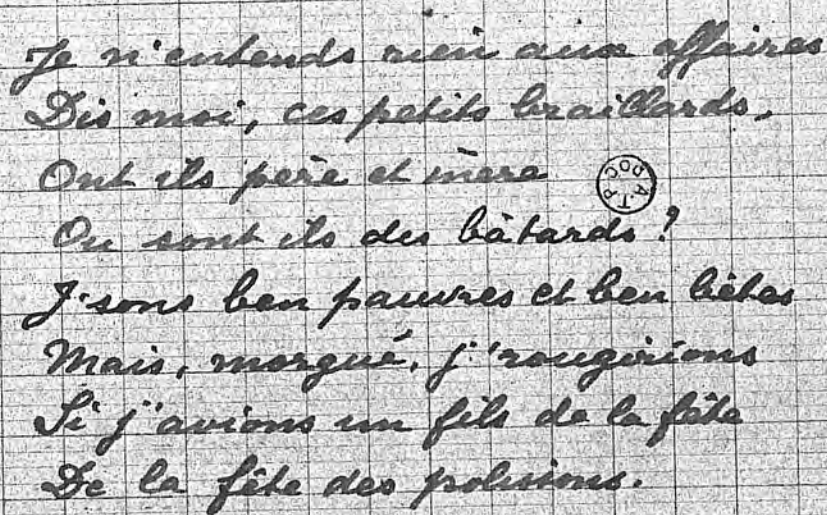 Je n'entends rien aux affaires
Dis moi, ces petits braillards,
Ont ils père et mère
Ou sont ils des bâtards?
J'sons ben pauvres et ben bêtes
Mais, morgué, j'rougirions
Si j'avions un fils de la fête
De la fête des polissons.
A.T.P.
DOC